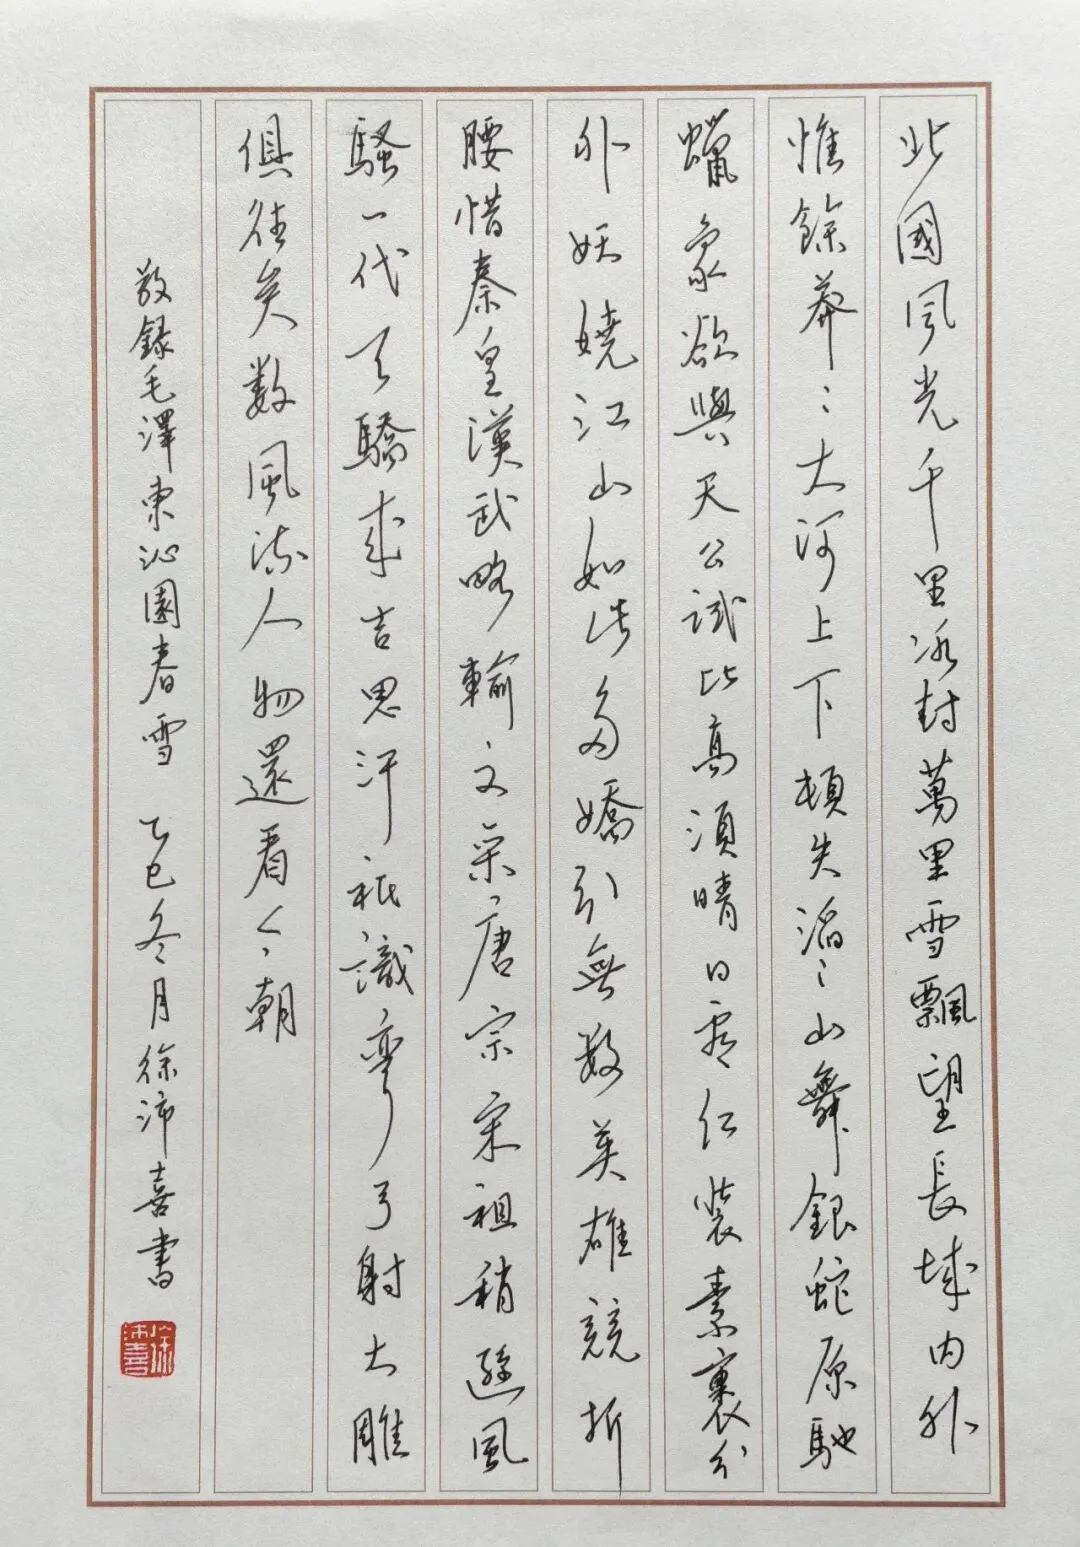 北國風光千里冰封萬里雪飄望長城内外
惟餘莽〻大河上下頓失滔〻山舞銀蛇原馳
蠟象欲與天公試比高須晴日看红裝素裹分
外妖嬈江山如此多嬌引無数英雄競折
腰惜秦皇漢武略輸文采唐宗宋祖稍遜風
騷一代天驕成吉思汗祇識彎弓射大雕
俱往矣数風流人物還看今朝
敬録毛澤東沁園春雪 乙巳冬月徐沛喜書
徐沛喜